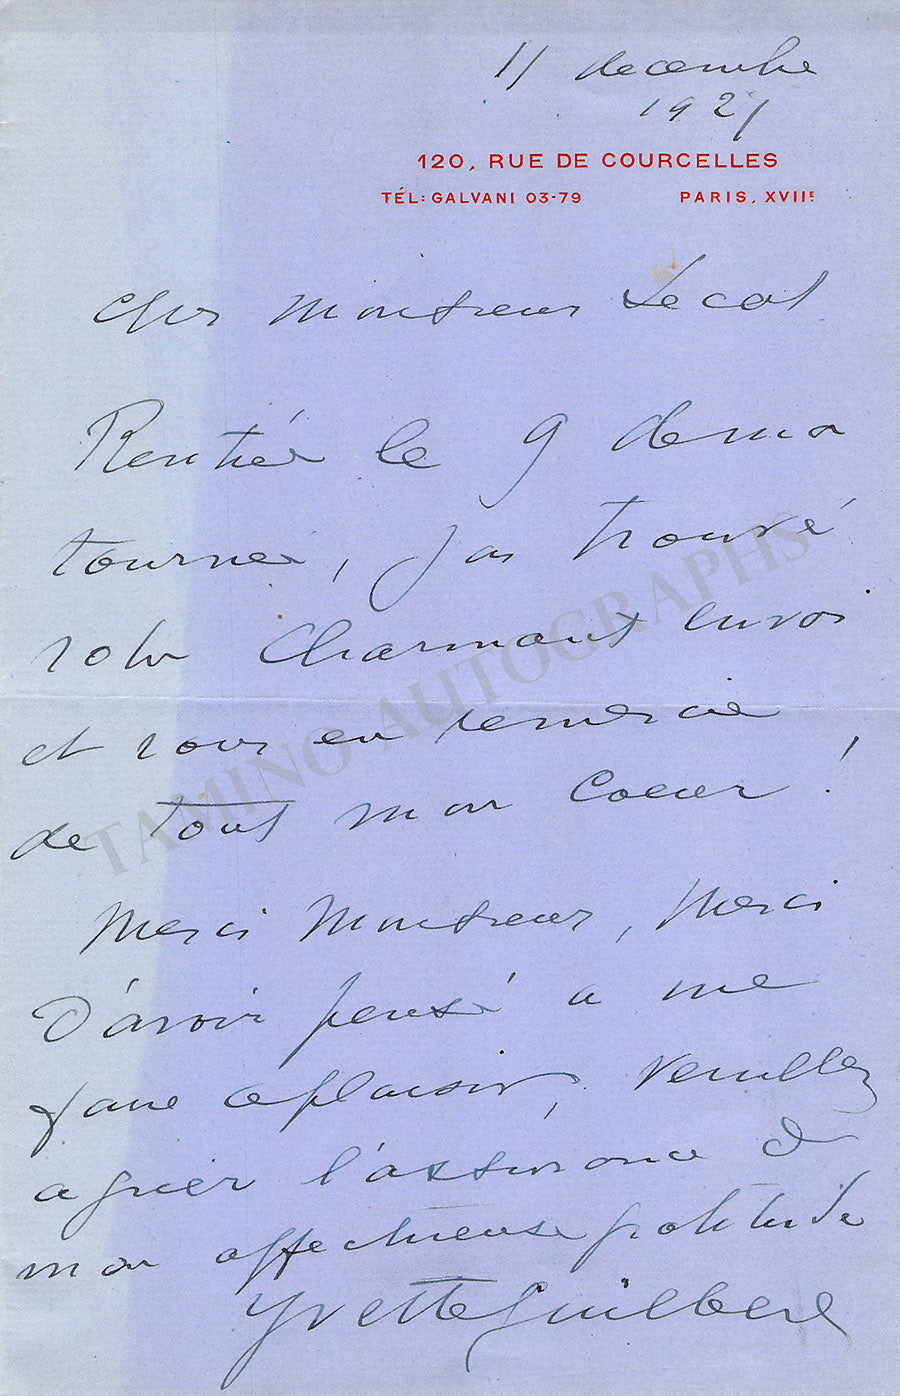 11 decembre
1927
120, RUE DE COURCELLES
TÉL: GALVANI 03-79 PARIS, XVIIE
Cher Monsieur Lecat
Rentrée le 9 de ma
tournée, j'ai trouvé
votre charmant envoi
et vous en remercie
de tout mon Coeur !
Merci Monsieur, Merci
d'avoir pensé a me
faire ce plaisir, Veuillez
agréer l'assurance de
mon affectueuse gratitude
Yvette Guilbert
TAMINO AUTOGRAPHS